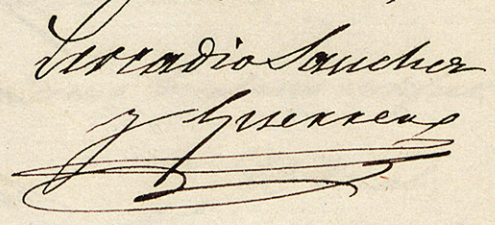 Leocadio Sanchez
y Guerrero